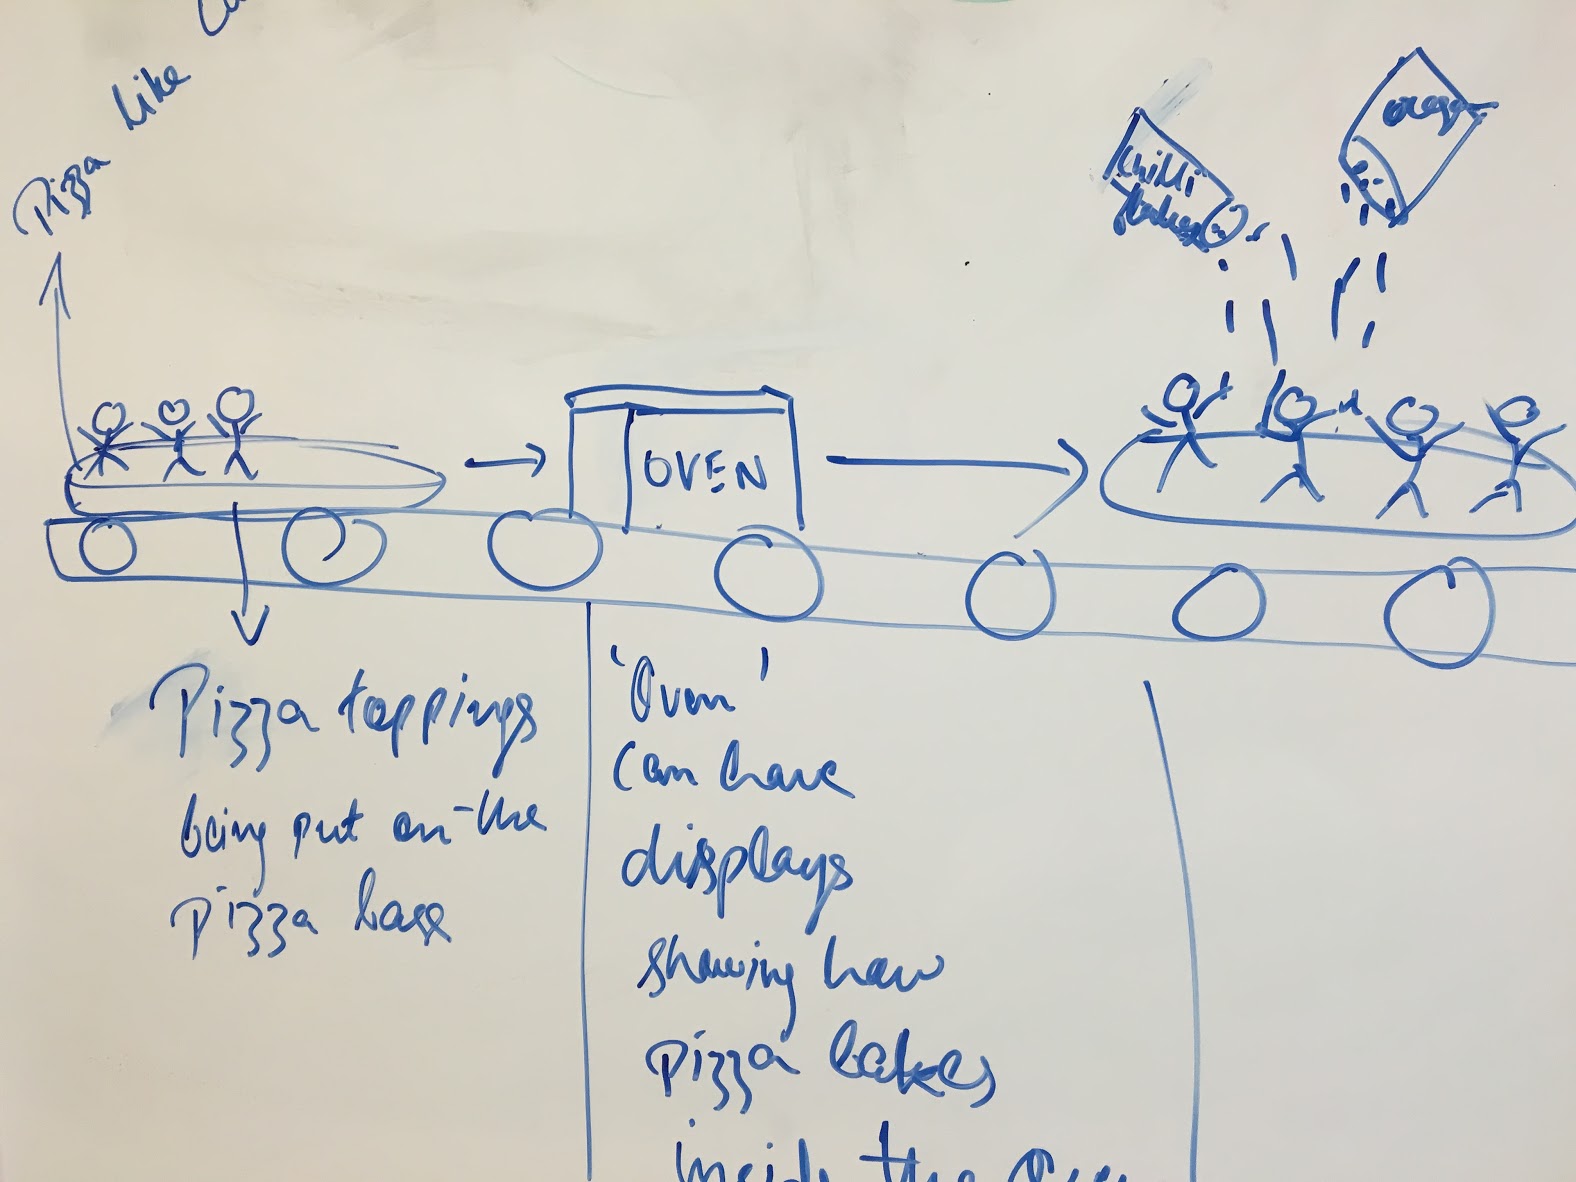 Pizza like
chilli
flakes
OVEN
Pizza toppings
being put on the
pizza base
'Oven'
can have
displays
showing how
pizza bakes
inside the Oven